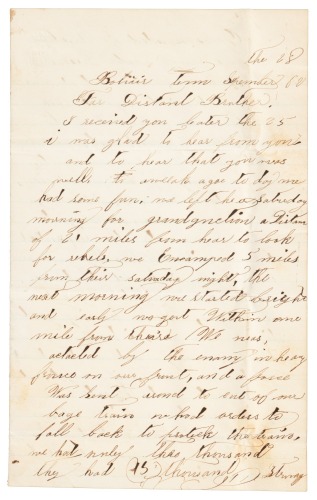 the 28
Bolivir tenn Sember 62
Far Distant Brother.
I receved you leater the 25
i was glad to hear from you
and to hear that you was
well. to a weak ago to day we
had some fun. we left hear Saturday
morning for grandjunction a Distance
of 21 miles from hear to look
for rebels. we Encamped 5 miles
from their saturday night, the
next morning we started bright
and early we got Within one
mile from theare. We was
atacted by the enemy in heavy
force on our front, and a force
was sent around to cut of our
bage train we had orders to
fall back to protect the train.
we had only thee, thousand
they had 15 thousand, strong